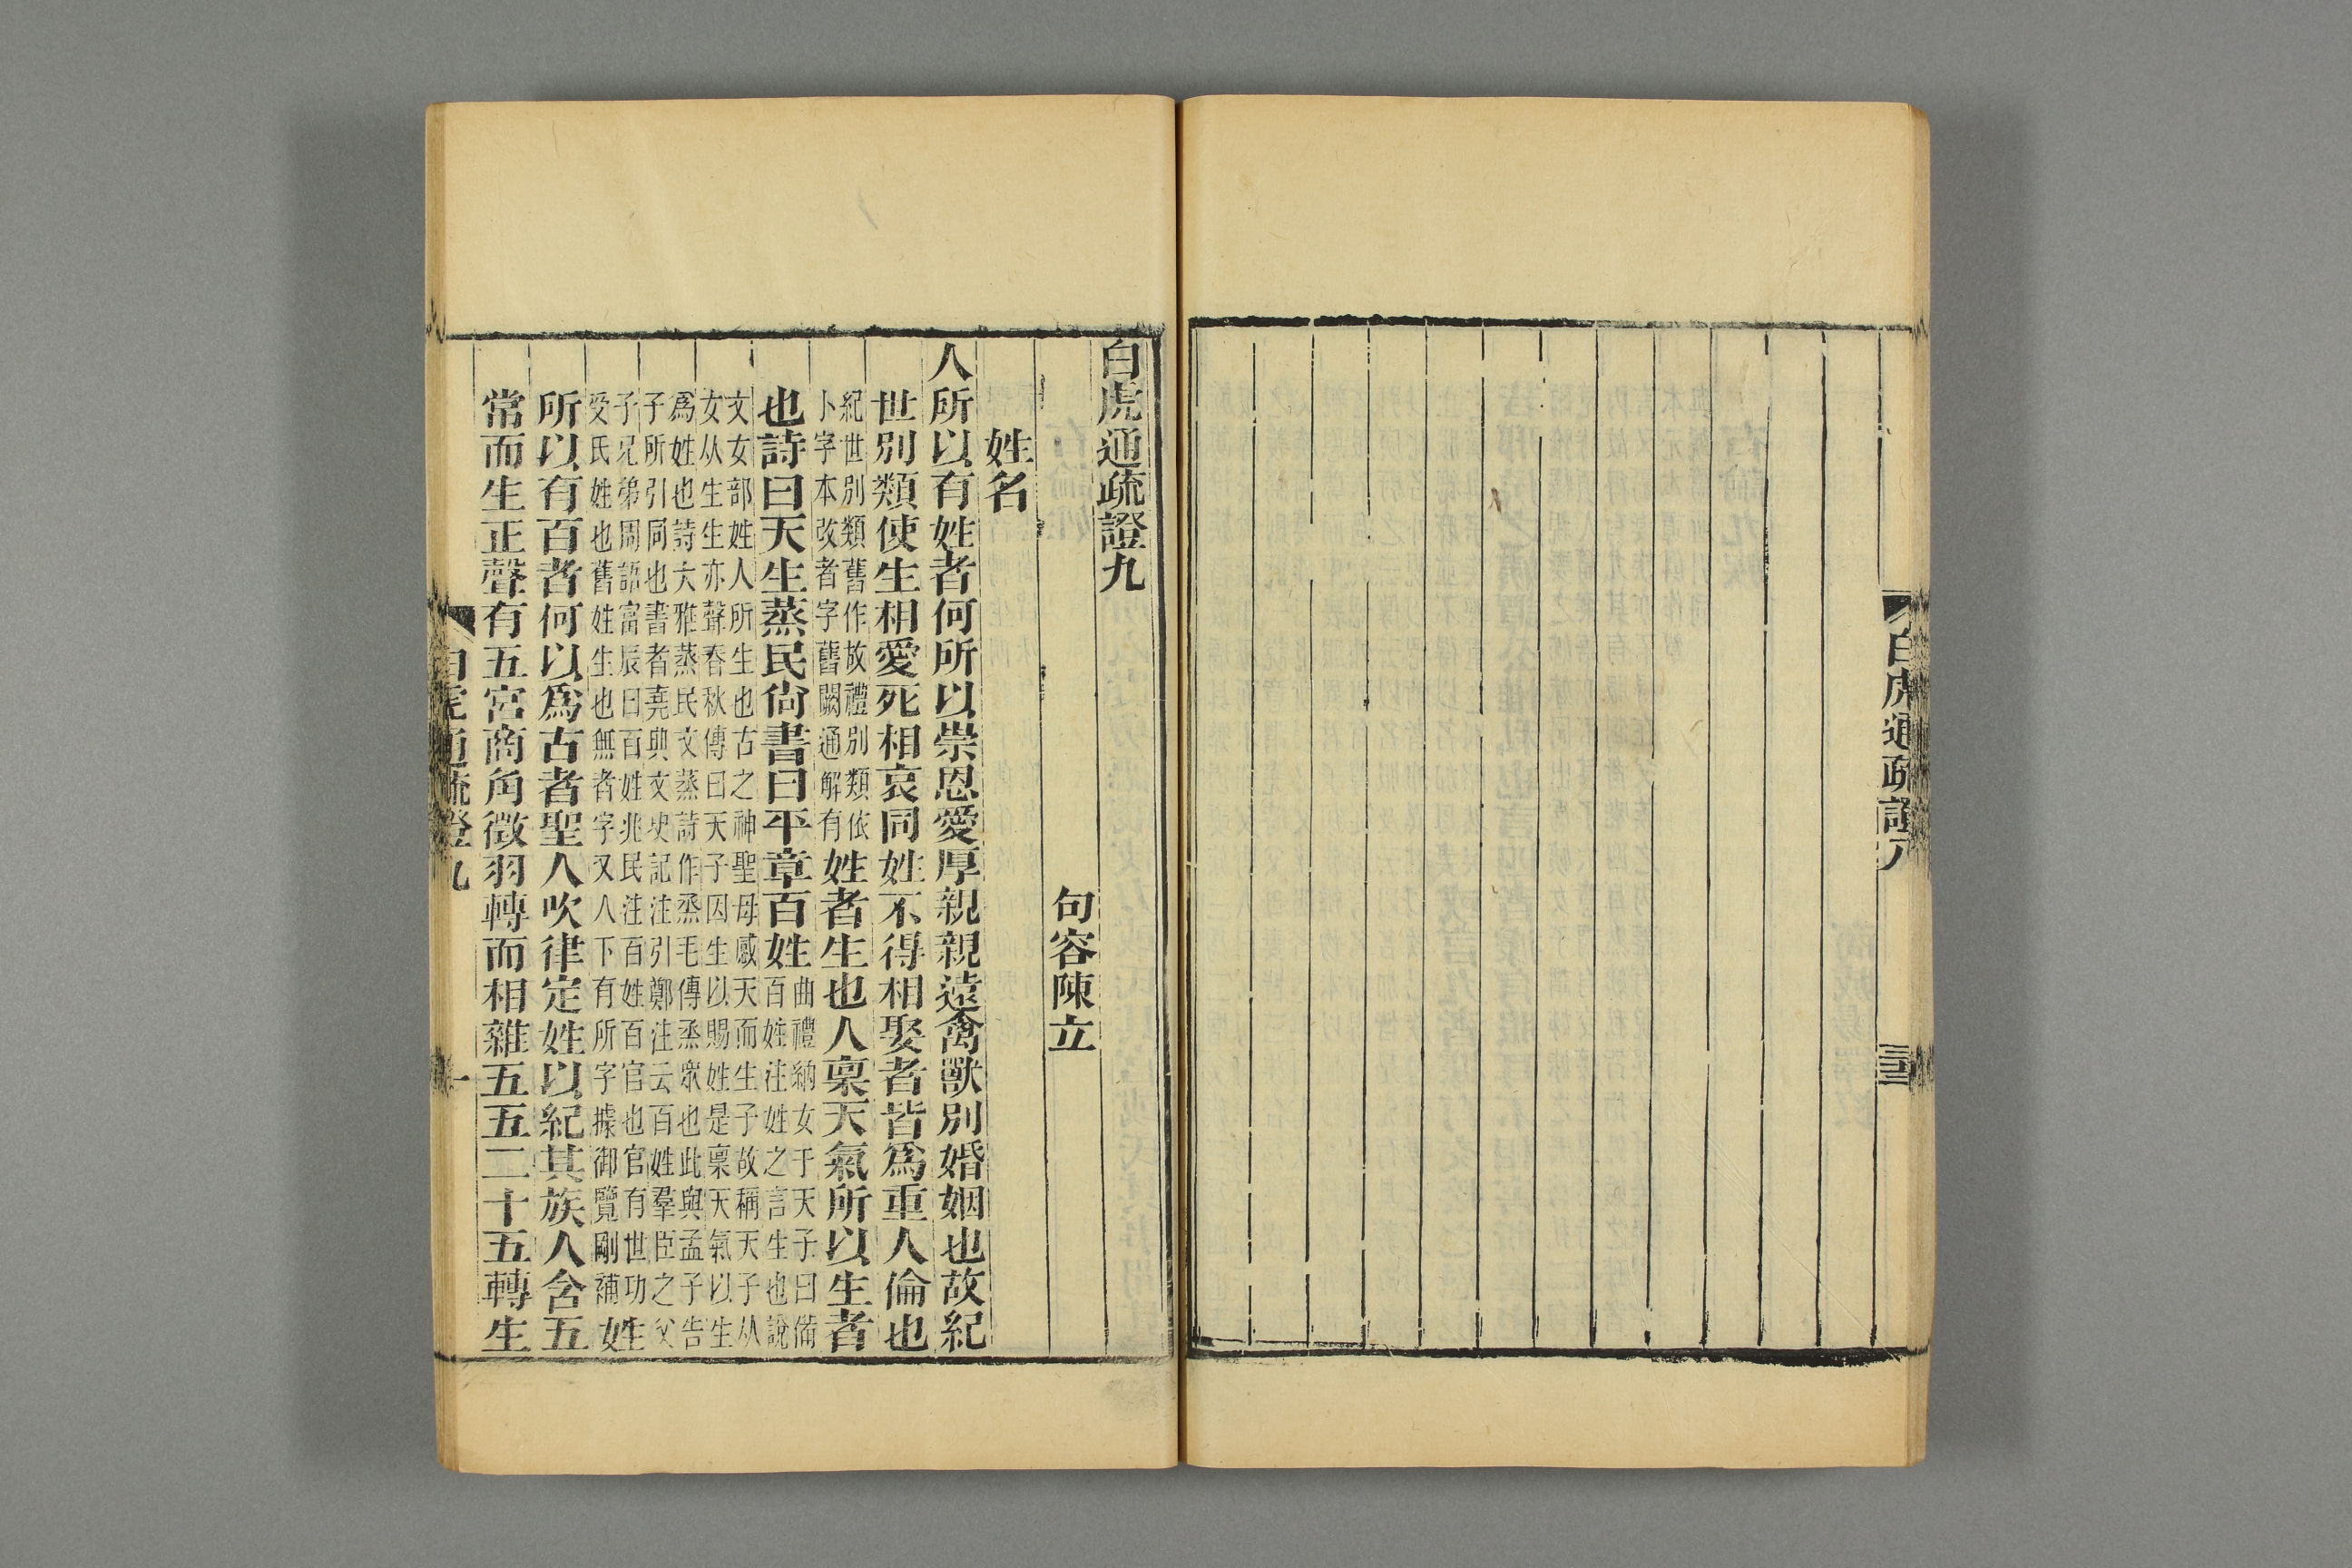 白虎通疏證八
三十三
白虎通疏證九
句容陳立
姓名
人所以有姓者何所以崇恩愛厚親親遠禽獸別婚姻也故紀
世別類使生相愛死相哀同姓不得相娶者皆爲重人倫也
紀世別類舊作故禮別類依
卜字本改者字舊闕通解有
姓者生也人稟天氣所以生者
也詩曰天生蒸民尙書曰平章百姓
曲禮納女于天子曰備
百姓注姓之言生也說
文女部姓人所生也古之神聖母感天而生子故稱天子从
女从生生亦聲春秋傳曰天子因生以賜姓是稟天氣以生
爲姓也詩大雅蒸民文蒸詩作烝毛傳烝衆也此與孟子告
子所引同也書者堯典文史記注引鄭注云百姓羣臣之父
子兄弟周語富辰曰百姓兆民注百姓百官也官有世功
受氏姓也舊姓生也無者字又人下有所字據御覽刪補
姓
所以有百者何以爲古者聖人吹律定姓以紀其族人含五
常而生正聲有五宮商角徵羽轉而相雜五五二十五轉生
白虎通疏證九
一